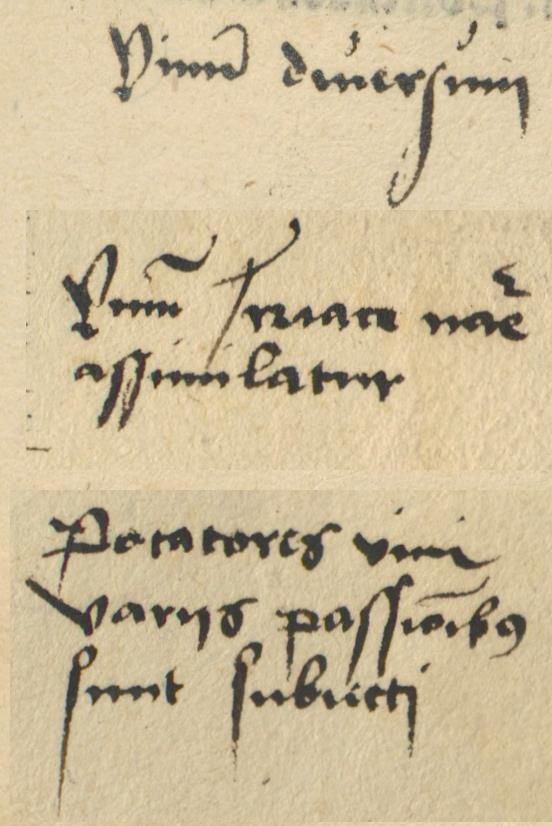 Vinū diversum
Vinū Tiriace naē
assimilatur
Potatores vini
varijs passiōibꝰ
sunt subiecti